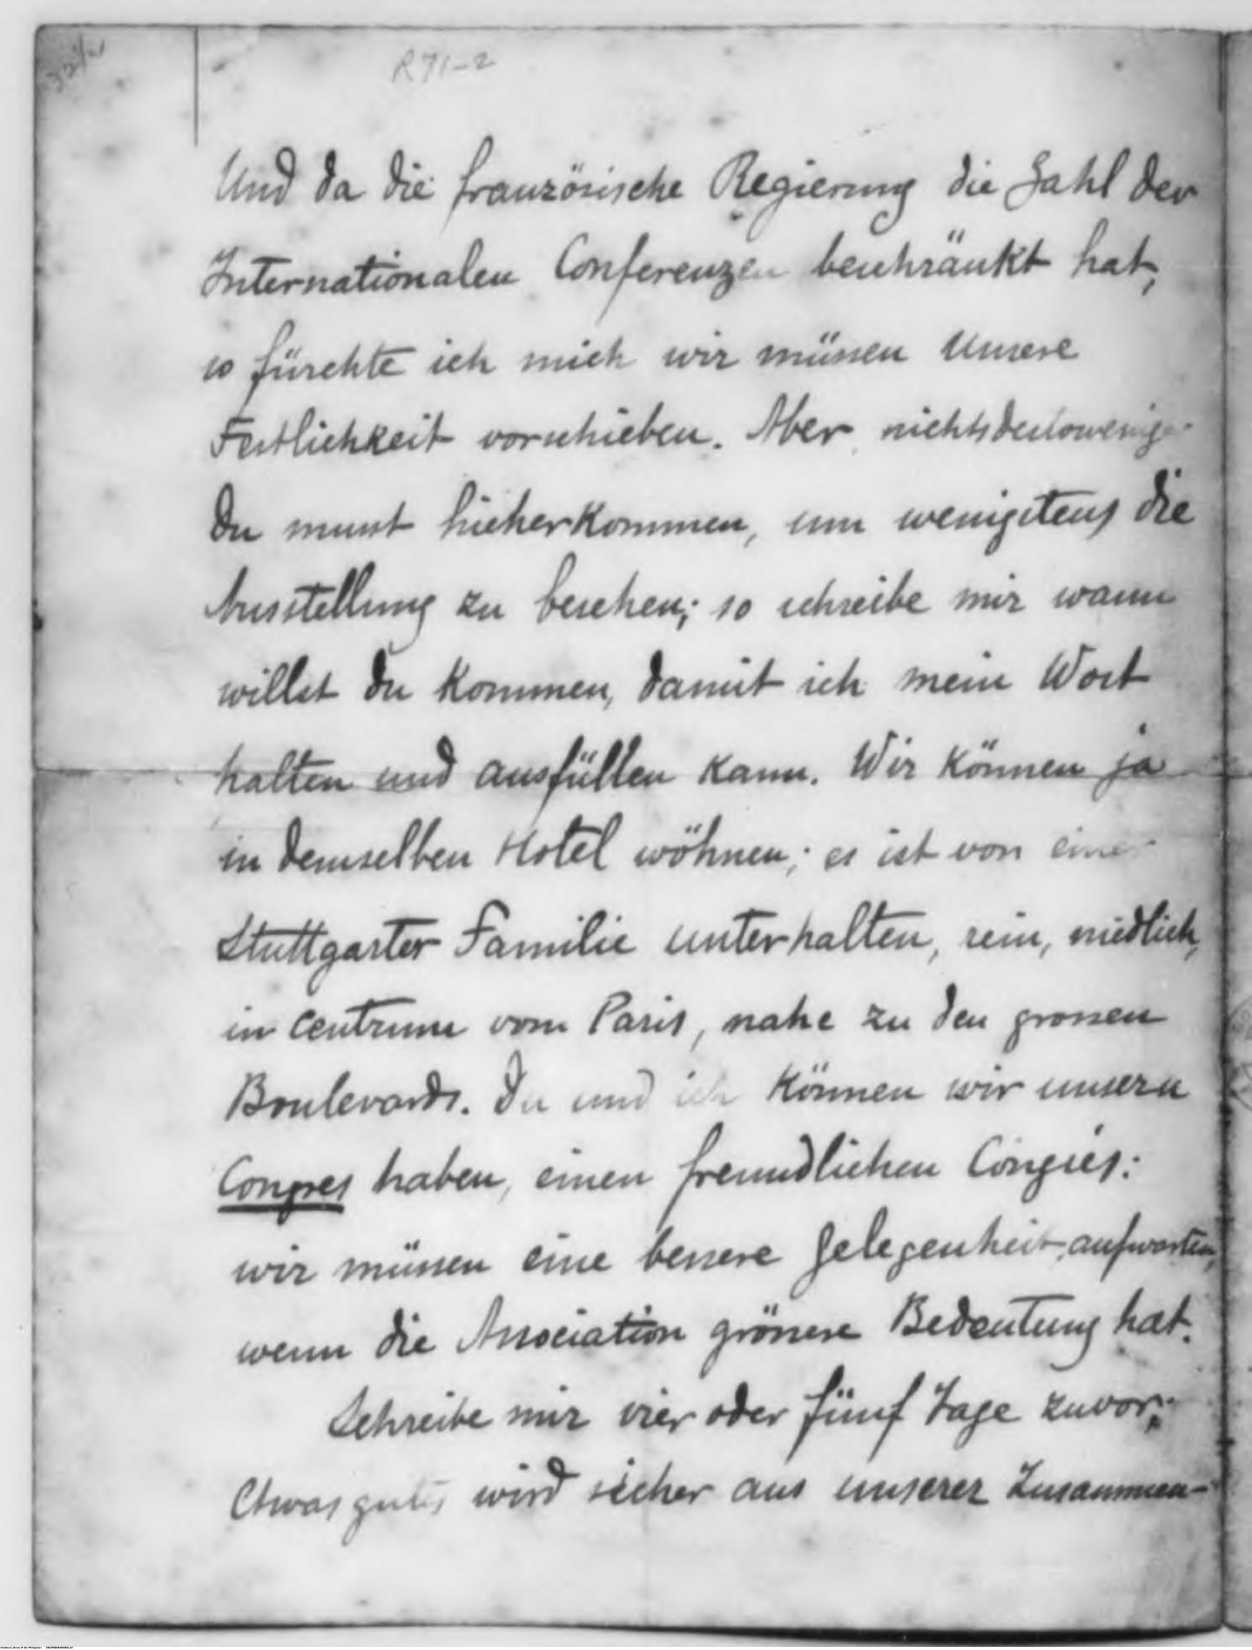 R71-2
Und da die französische Regierung die Zahl der
Internationalen Conferenzen beschränkt hat,
so fürchte ich mich wir müssen Unsere
Festlichkeit vorschieben. Aber nichtsdestoweniger
du musst hieherkommen, um wenigstens die
Ausstellung zu besehen; so schreibe mir wann
willst du kommen, damit ich mein Wort
halten und ausfüllen kann. Wir können ja
in demselben Hotel wöhnen; es ist von einer
Stuttgarter Familie unterhalten, rein, niedlich,
in Centrum vom Paris, nahe zu den grossen
Boulevards. Du und ich können wir unsern
Congres haben, einen freundlichen Congrés:
wir müssen eine bessere Gelegenheit aufwarten,
wenn die Association grössere Bedeutung hat.
Schreibe mir vier oder fünf Tage zuvor;
Etwas gutes wird sicher aus unserer Zusammen-